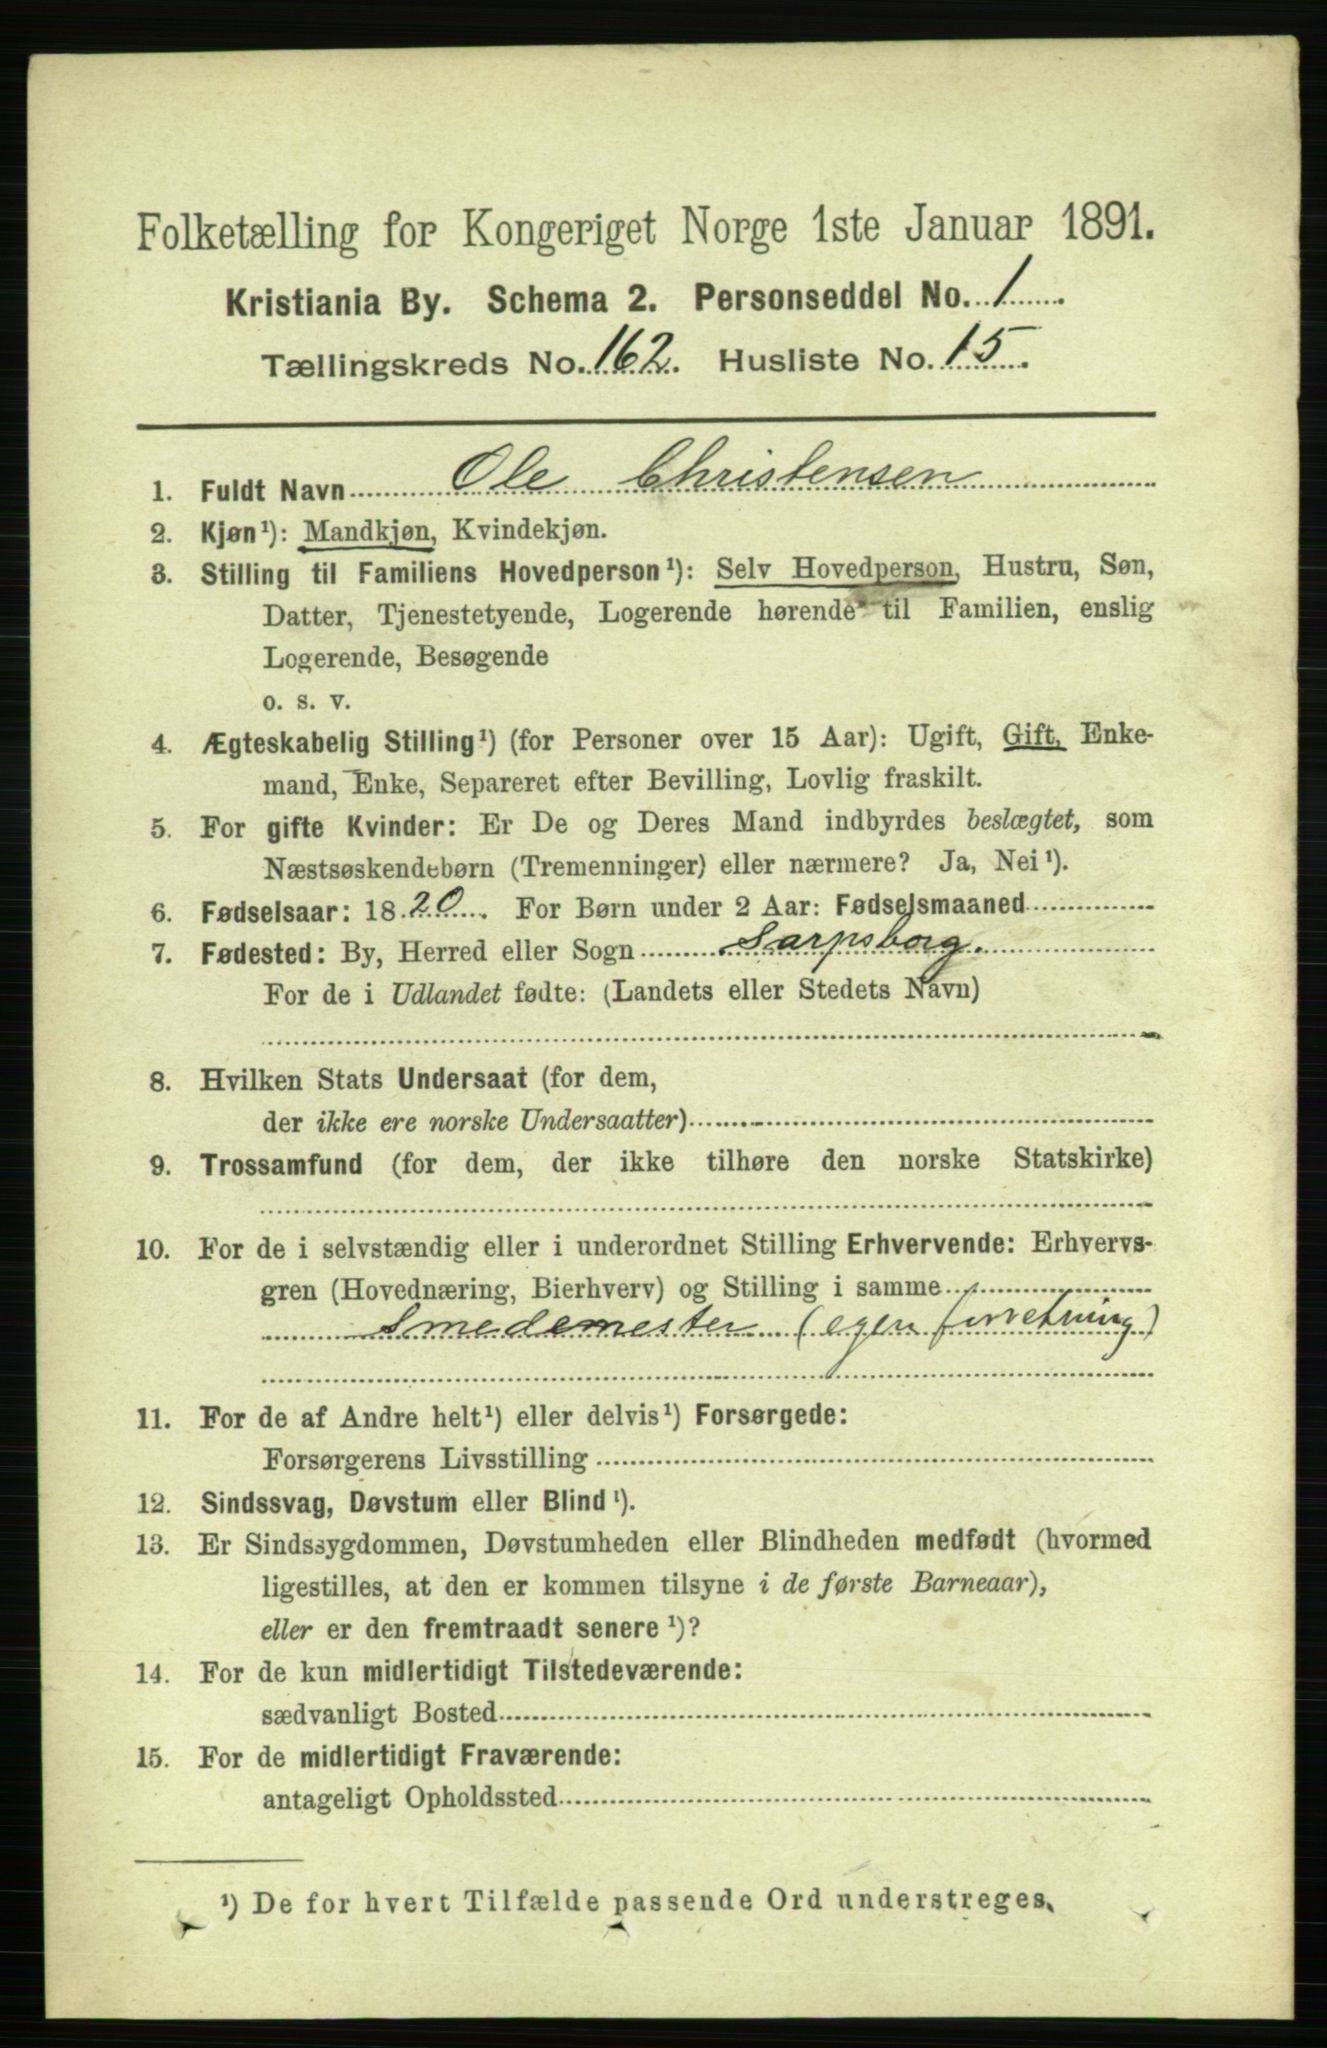 Folketælling for Kongeriget Norge 1ste Januar 1891.
Kristiania By. Schema 2. Personseddel No. 1.
Tællingskreds No. 162. Husliste No. 15.
1. Fuldt Navn Ole Christensen
2. Kjøn¹): Mandkjøn, Kvindekjøn.
3. Stilling til Familiens Hovedperson¹): Selv Hovedperson, Hustru, Søn,
Datter, Tjenestetyende, Logerende hørende til Familien, enslig
Logerende, Besøgende
o. s. v.
4. Ægteskabelig Stilling¹) (for Personer over 15 Aar): Ugift, Gift, Enke-
mand, Enke, Separeret efter Bevilling, Lovlig fraskilt.
5. For gifte Kvinder: Er De og Deres Mand indbyrdes beslægtet, som
Næstsøskendebørn (Tremenninger) eller nærmere? Ja, Nei¹).
6. Fødselsaar: 1820. For Børn under 2 Aar: Fødselsmaaned
7. Fødested: By, Herred eller Sogn Sarpsborg.
For de i Udlandet fødte: (Landets eller Stedets Navn)
8. Hvilken Stats Undersaat (for dem,
der ikke ere norske Undersaatter)
9. Trossamfund (for dem, der ikke tilhøre den norske Statskirke)
10. For de i selvstændig eller i underordnet Stilling Erhvervende: Erhvervs-
gren (Hovednæring, Bierhverv) og Stilling i samme
Smedemester (egen forretning)
11. For de af Andre helt¹) eller delvis¹) Forsørgede:
Forsørgerens Livsstilling
12. Sindssvag, Døvstum eller Blind¹).
13. Er Sindssygdommen, Døvstumheden eller Blindheden medfødt (hvormed
ligestilles, at den er kommen tilsyne i de første Barneaar),
eller er den fremtraadt senere¹)?
14. For de kun midlertidigt Tilstedeværende:
sædvanligt Bosted
15. For de midlertidigt Fraværende:
antageligt Opholdssted
¹) De for hvert Tilfælde passende Ord understreges.